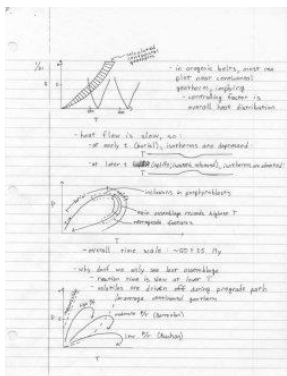 calculated
continental
geotherm
- in orogenic belts, most
plot near continental
geotherm, implying
- controlling factor is
overall heat distribution
T
- heat flow is slow, so:
- at early t (burial), isotherms are depressed
T
- at later t (uplift, isotherms are elevated
T
inclusions in porphyroblasts
main assemblage records highest T
retrograde features
T
- overall time scale:
- why don't we only see last assemblage
- reaction rate is slow at lower T
- volatiles are driven off during prograde path
average continental geotherm
high P/T
moderate P/T (Barrovian)
low P/T (Buchan)
T